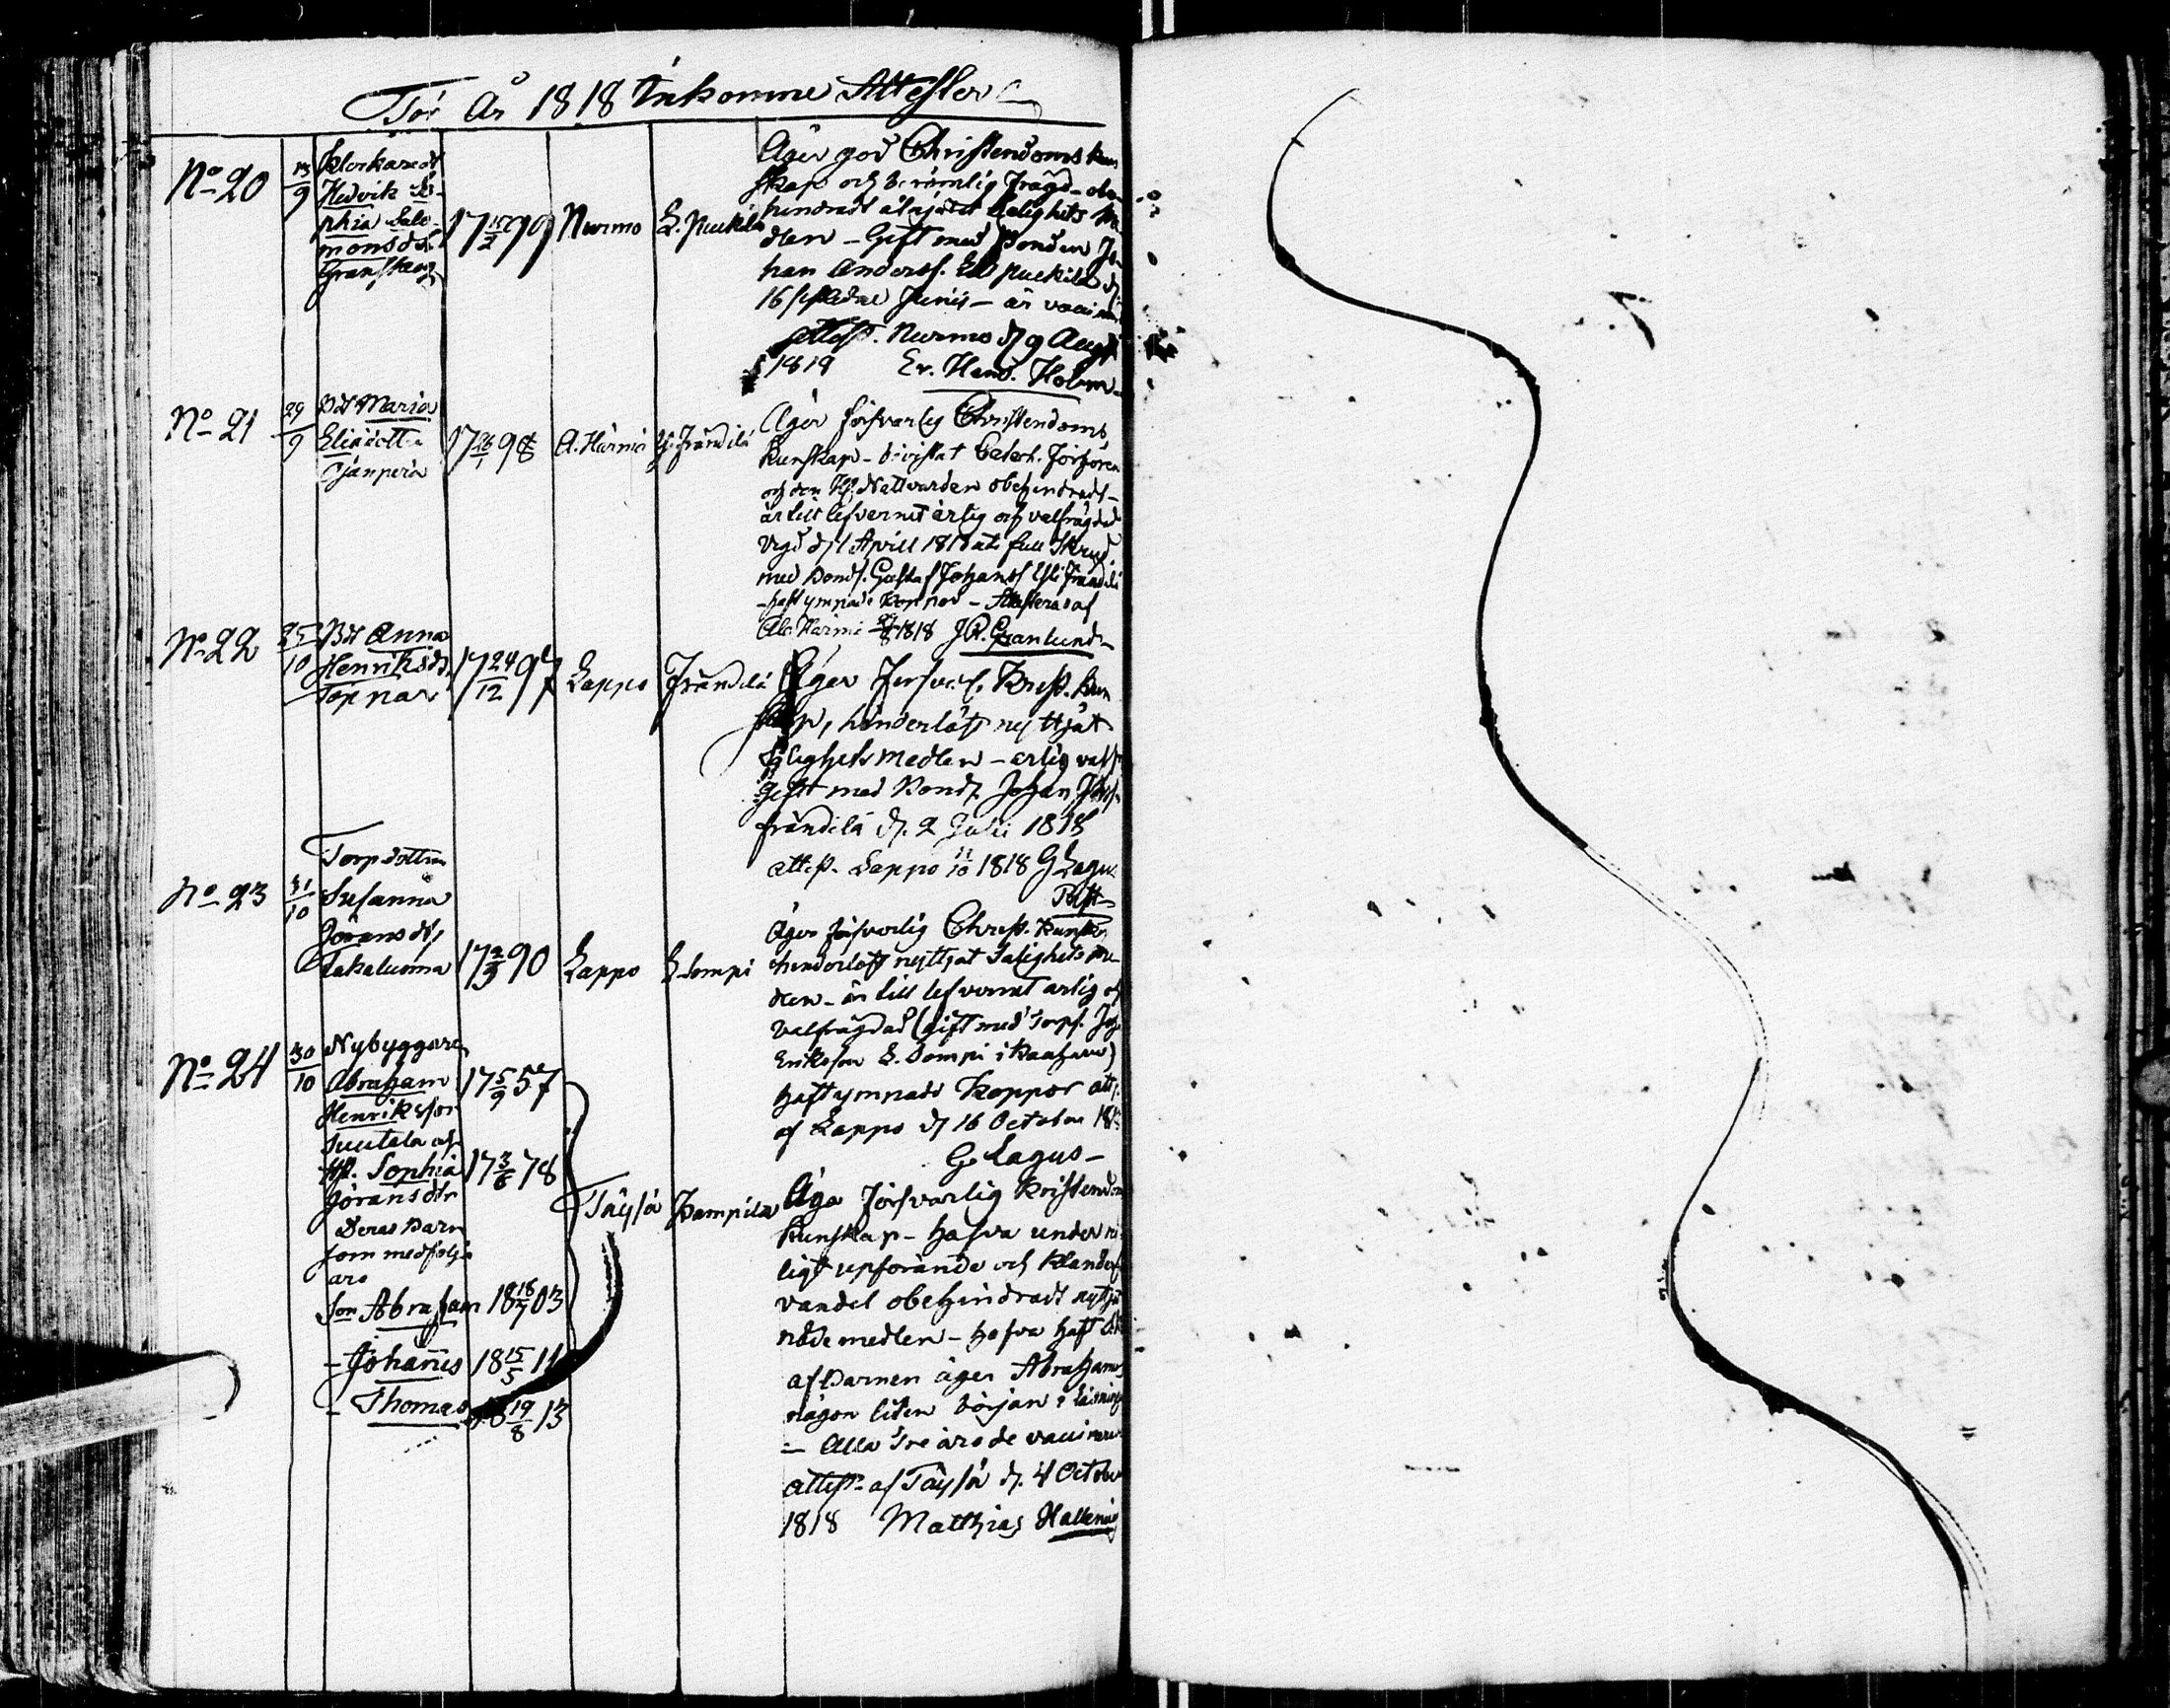 För År 1818 Inkomne Attester
No 20
13/9
Klockaredr
Hedvik So-
phia Salo-
monsdr
Granskog
17 15/2 99
Nurmo
L. Puckila
Äger god Christendoms kun
skap och berömlig frägd - obe-
hindradt nytjat Salighets me
dlen - Gift med Bonden Jo-
han Anderss. Puckila d.
16 sistledne Junii - är vacinn
Attest. Nurmo d. 9 Aug.
1818 Er. Hend. Holm
No 21
29/9
Bdr Maria
Eliædotter
Tjänperä
17 26/1 98
A. Härmä
Y. Frändilä
Äger försvarlig Christendoms
Kunskap - bivistat Catech. Förhören
och den H. Nattvarden obehindradt -
är till lefvernet ärlig och välfrägdad
Vigd d. 1 April 1818 uti full Skrud
med Bonds. Gustaf Johanss. Yli Frändilä
- haft ympade Koppor - Attesteras af
Ala Härmä 1818 J.R. Granlund -
No 22
25/10
Bdr Anna
Henriksdr
Topnar
17 24/12 97
Lappo
Frändilä
Äger Försvarl. Krist. kun
skap, hinderlöst nyttjat
Salighets medlen - ärlig
Gift med Bonds. Johan
Frändilä d. 2 Julii 1818
attest. Lappo 11/10 1818 G Lagus
Past.
No 23
31/10
Torp dottren
Susanna
Göransdr
Takaluoma
17 2/3 90
Lappo
L. Sompi
Äger försvarlig Christ. kunskap
hinderlöst nyttjat Salighets me-
dlen - är till lefvernet ärlig och
välfrägdad (gift med Torp. Joh.
Eriksson L. Sompi i Kauhava)
haft ympade Koppor att.
af Lappo d. 16 October 1818
G. Lagus -
No 24
30/10
Nybyggaren
Abraham
Henriksson
Suutala och
Hst. Sophia
Göransdtr
Deras Barn
som medfölja
äro
Son Abraham
- Johannes
- Thomas
17 5/9 57
17 3/6 78
18 18/7 03
18 15/5 11
18 19/8 13
Töysä
Pampila
Äga försvarlig Kristendoms
Kunskap - hafva under
ligt upförande och Klanderf
vandel obehindradt nyttjat
nådemedlen - hafva haft
af Barnen äger Abraham
någon liten början i Läsning
- Alla tre äro de vacinerade
attest. af Töysä d. 4 October
1818 Matthias Hallenius